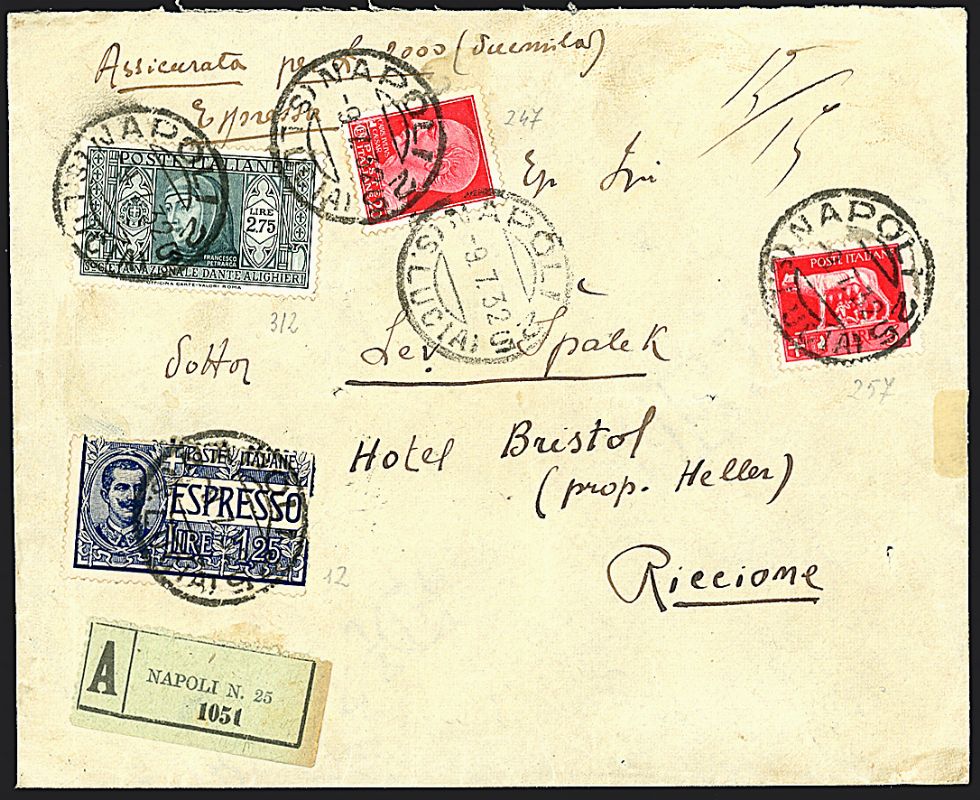 Assicurata per L 2000 (duemila)
Espresso
NAPOLI 25
(S. LUCIA)
247
POSTE ITALIANE
LIRE
2.75
FRANCESCO
PETRARCA
SOCIETÀ NAZIONALE DANTE ALIGHIERI
OFFICINA CARTE-VALORI ROMA
312
NAPOLI 25
-9.7.32
(S. LUCIA)
POSTE ITALIANE
LIRE
257
Dottor Lev Spalek
Hotel Bristol
(prop. Heller)
Riccione
POSTE ITALIANE
ESPRESSO
LIRE 1,25
12
A
NAPOLI N. 25
1051